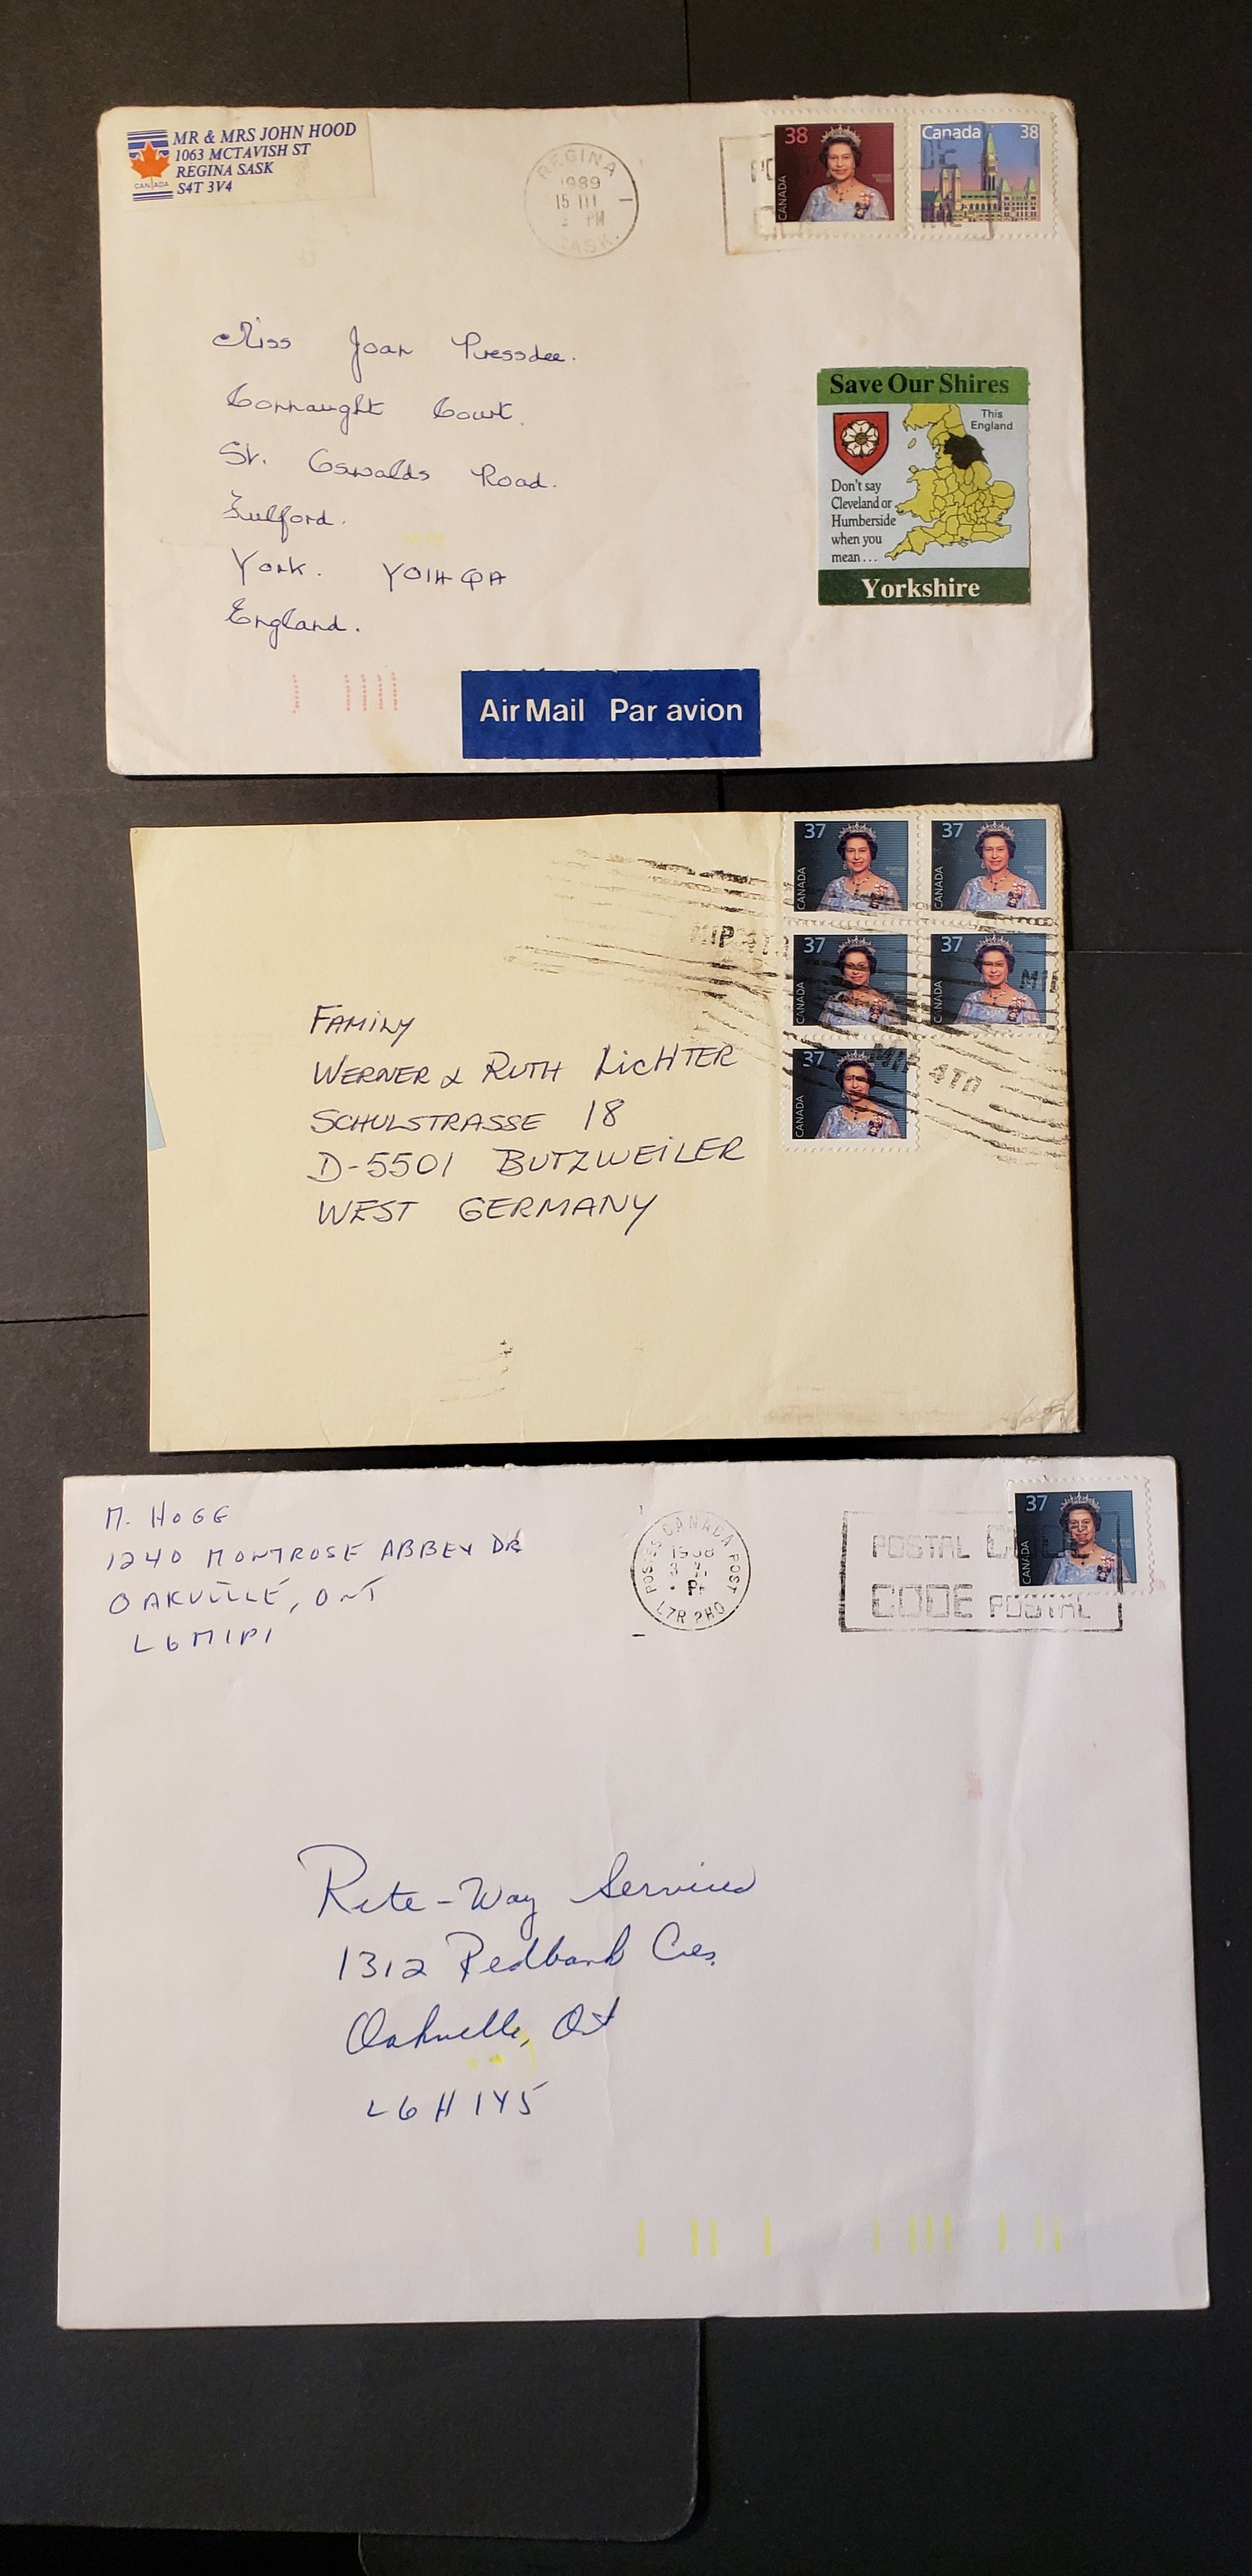 MR & MRS JOHN HOOD
1063 MCTAVISH ST
REGINA SASK
S4T 3V4
CANADA
REGINA
1989
15 III
PM
SASK.
38
CANADA
Canada 38
Miss Joan Pressdee.
Connaught Court.
St. Oswalds Road.
Fulford.
York. YO14QA
England.
Save Our Shires
This
England
Don't say
Cleveland or
Humberside
when you
mean...
Yorkshire
Air Mail Par avion
37
CANADA
37
CANADA
37
CANADA
37
CANADA
37
CANADA
MIP 4T0
FAMILY
WERNER & RUTH LICHTER
SCHULSTRASSE 18
D-5501 BUTZWEILER
WEST GERMANY
M. HOGG
1240 MONTROSE ABBEY DR
OAKVILLE, ONT
L6M1P1
POSTES CANADA POST
L7R 2H0
POSTAL CODE
CODE POSTAL
37
CANADA
Rite-Way Services
1312 Redbank Cres.
Oakville, Ont
L6H 1Y5